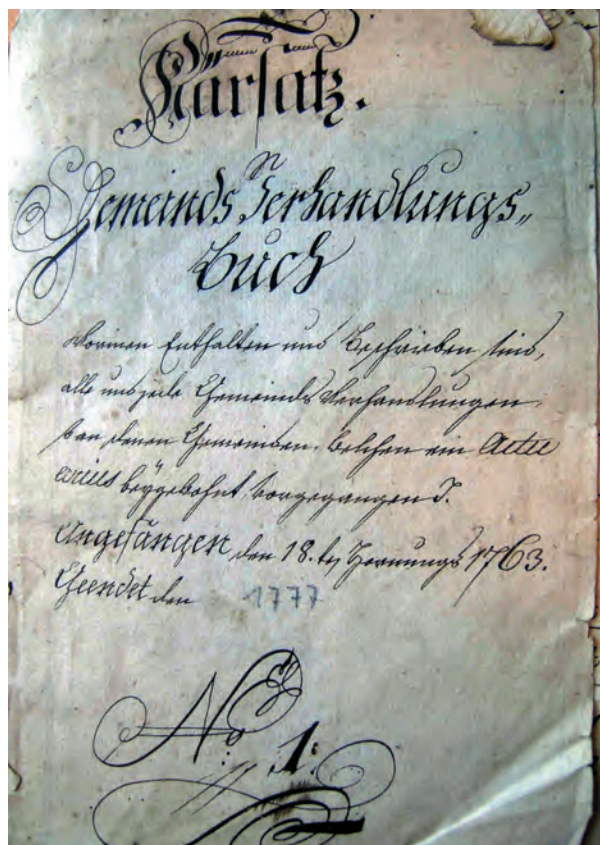 Kärsatz.
Gemeinds Verhandlungs„
Buch
Worinen Enthalten und Beschrieben sind,
alle und jede Gemeinds Verhandlungen,
von denen Gemeinden. Welchen ein Actu
arius beÿgewohnt, vorgegangen.
Angefangen den 18. tes Hornungs 1763.
Geendet den 1777
No 1: